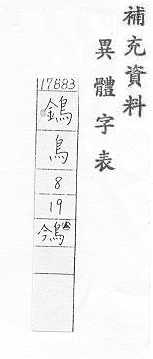 補充資料
異體字表
17683
鎢
鳥
8
19